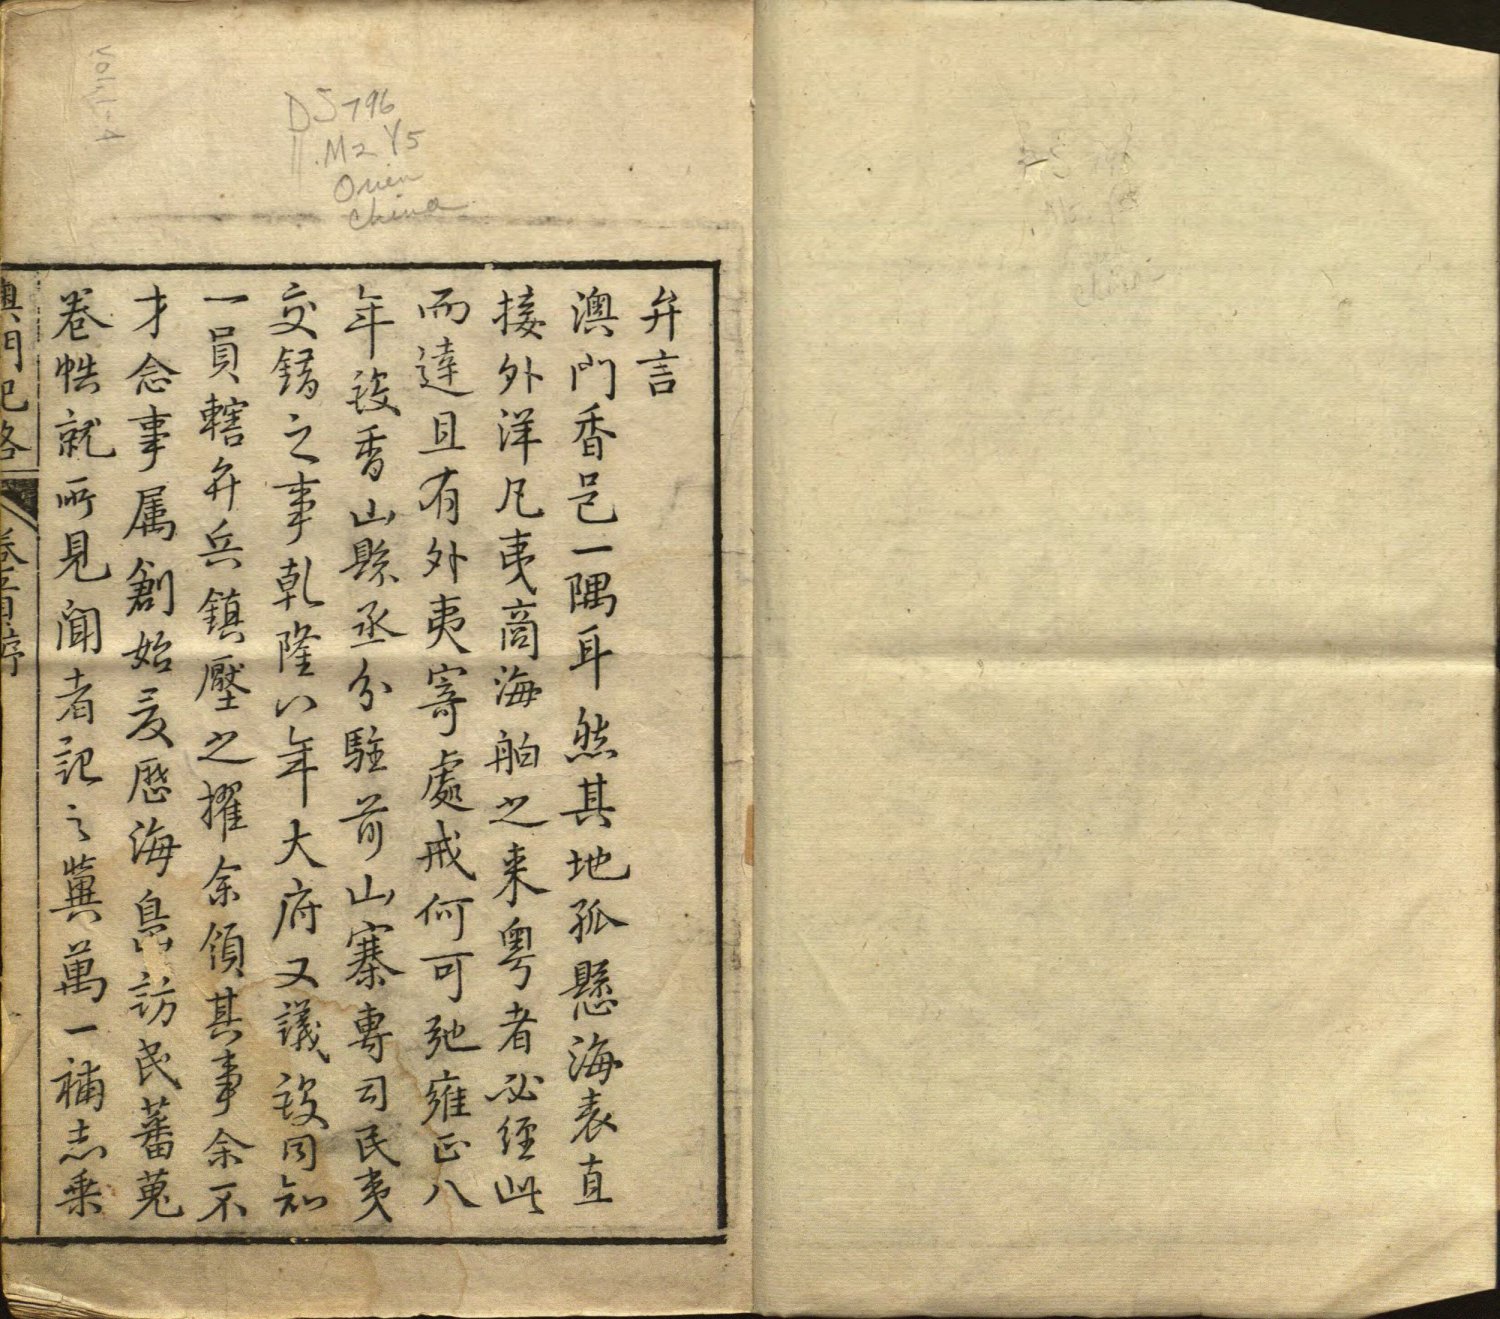 弁言
澳門香邑一隅耳然其地孤懸海表直
接外洋凡夷商海舶之来粤者必經此
而達且有外夷寄處戒何可弛雍正八
年設香山縣丞分駐前山寨專司民夷
交錯之事乾隆八年大府又議設同知
一員轄弁兵鎮壓之擢余領其事余不
才念事属創始爰歴海島訪民蕃蒐
卷帙就所見聞者記之冀萬一補志乘
澳門記略 卷首序
DS796
.M2 Y5
Orien
China
Vol. 1-4